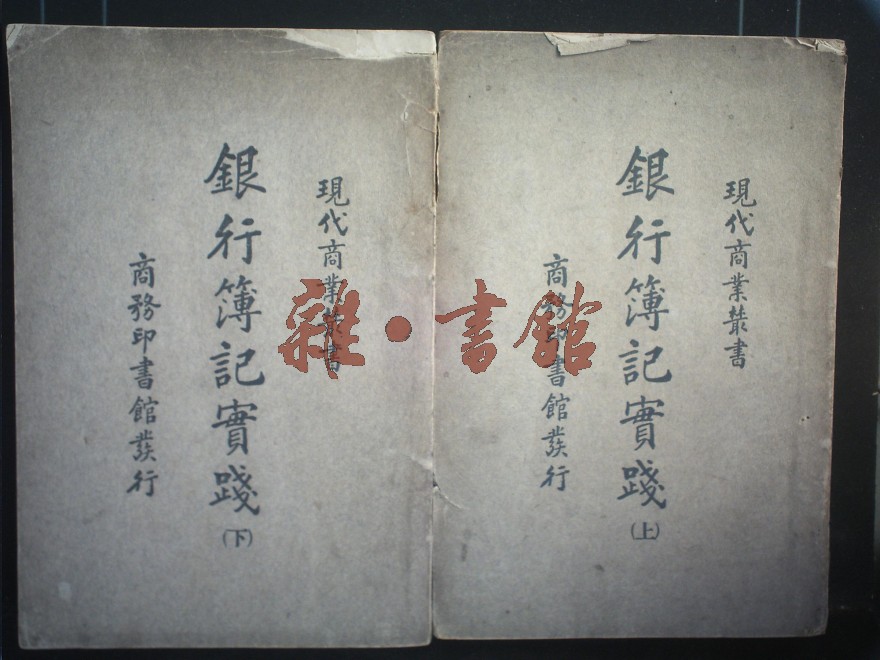 現代商業叢書
銀行簿記實踐
(上)
商務印書館發行
現代商業叢書
銀行簿記實踐
(下)
商務印書館發行
雜·書館